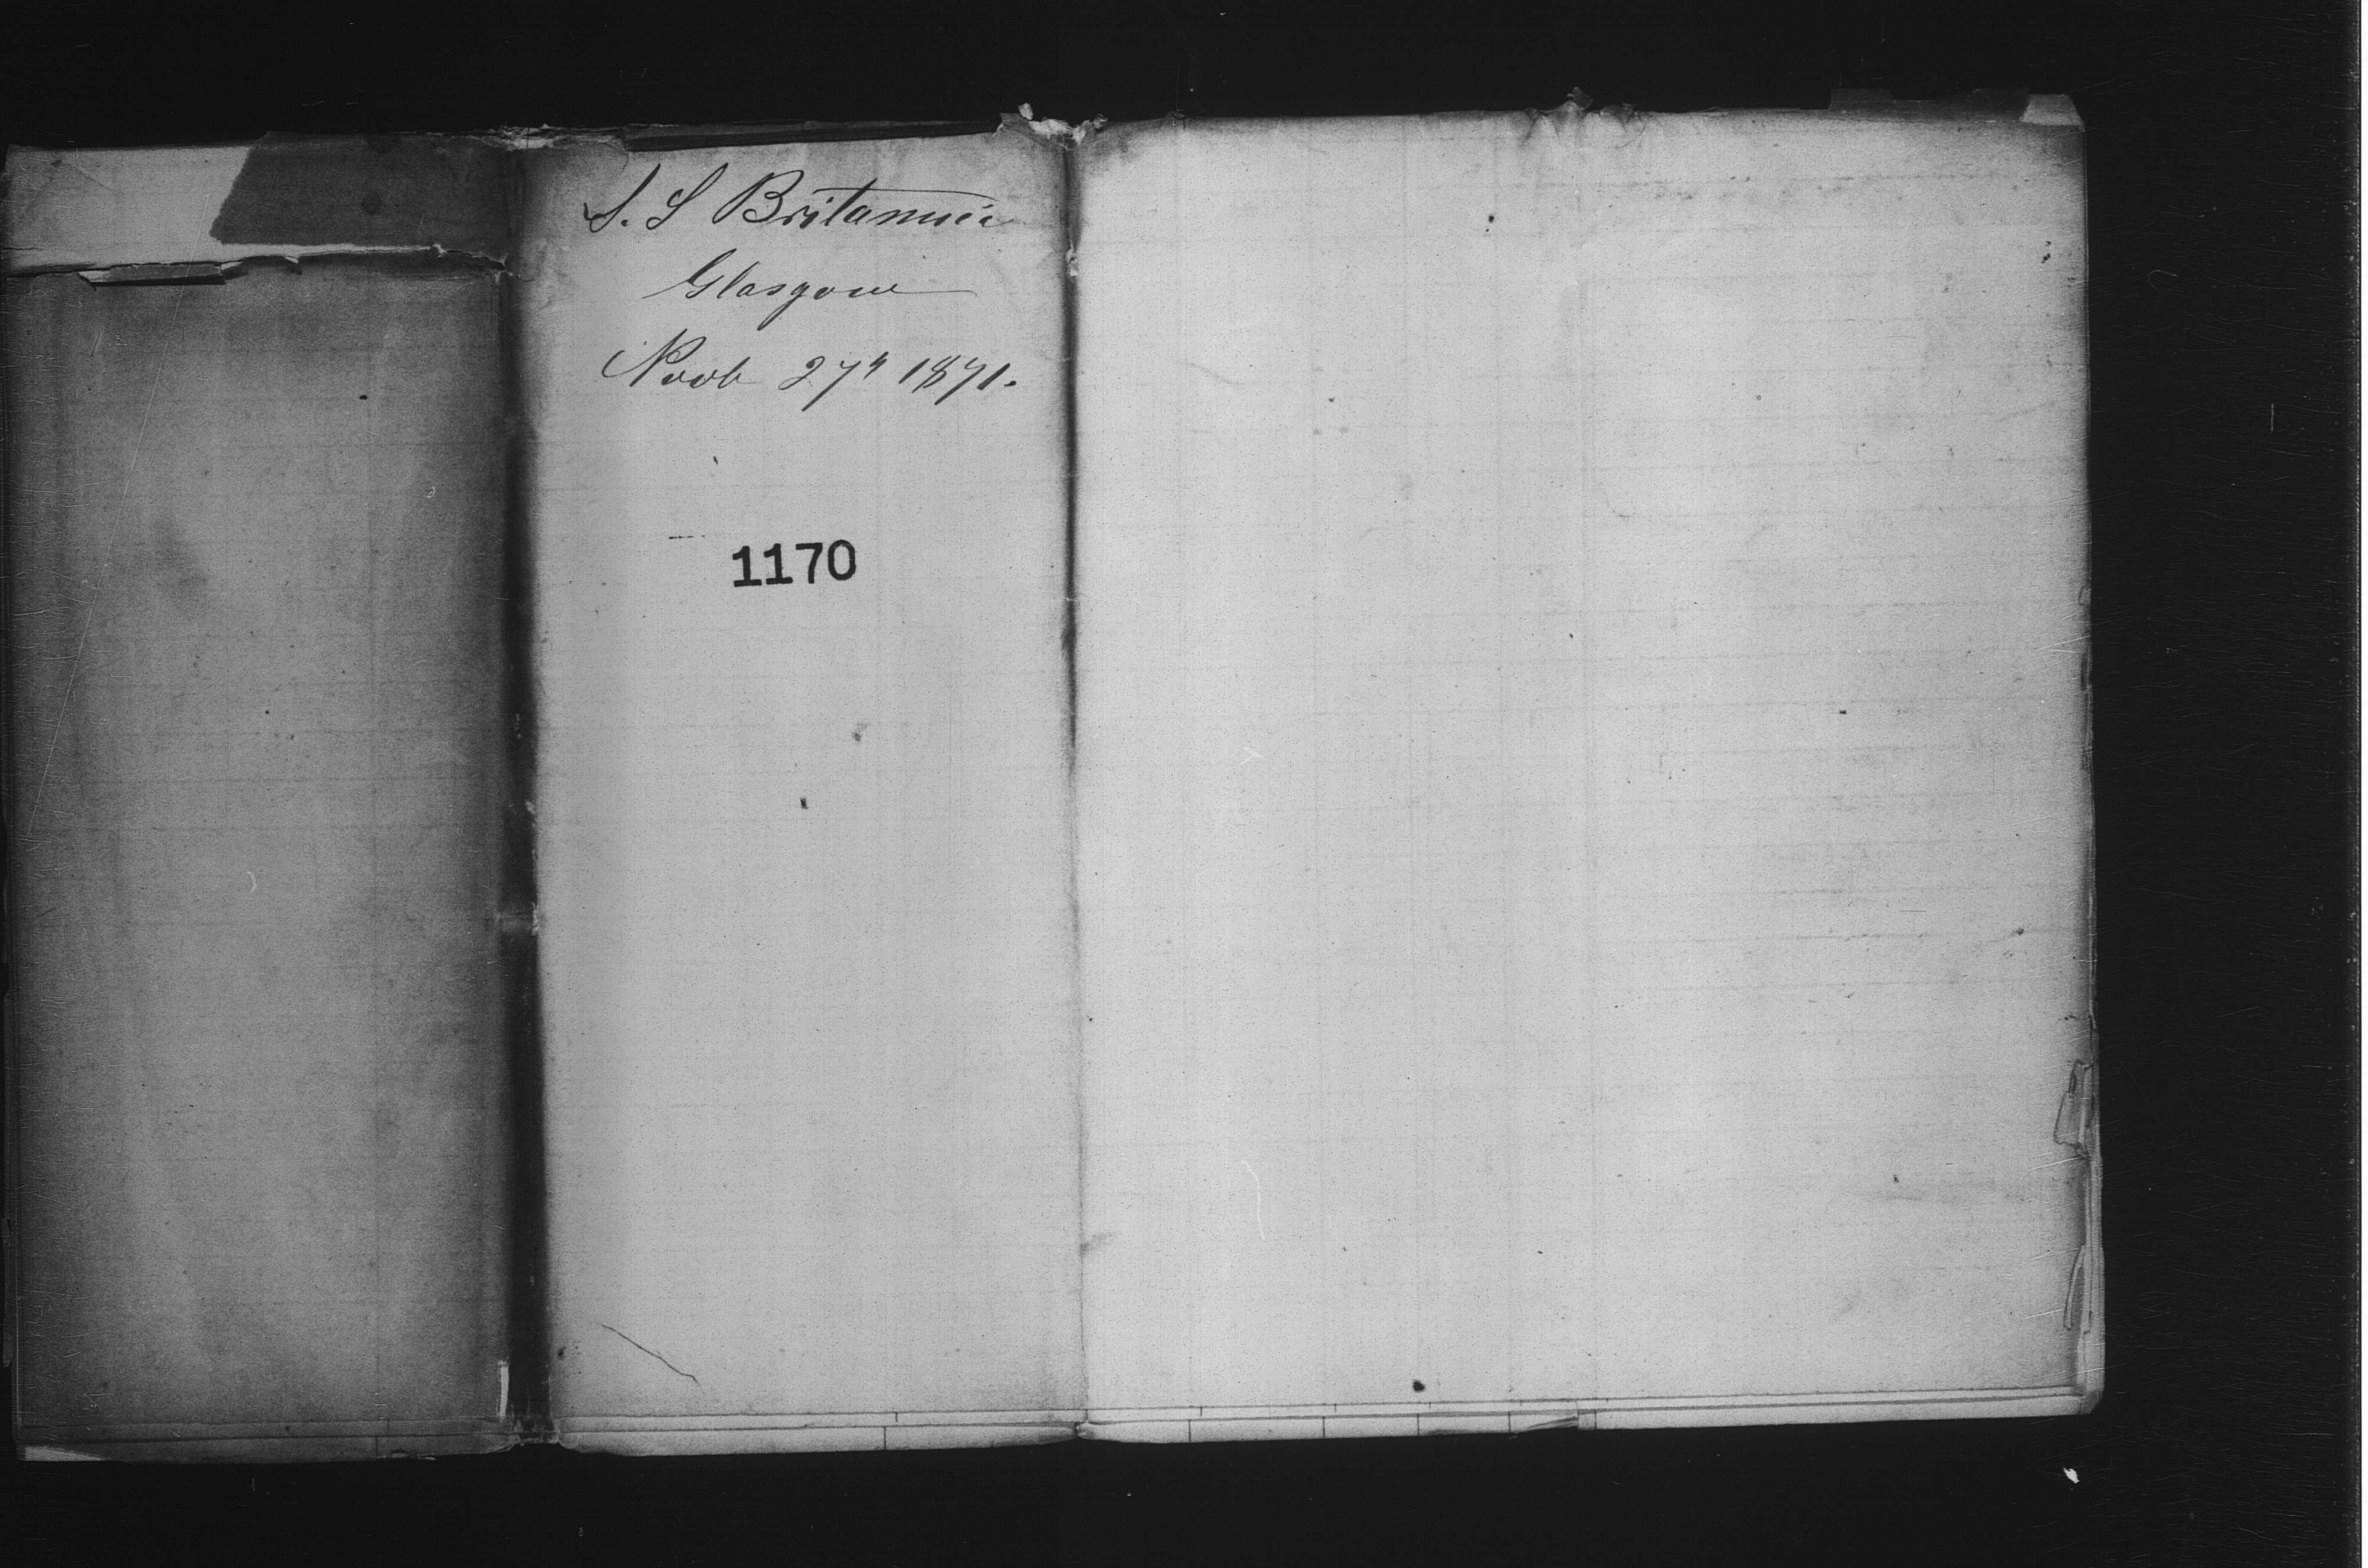 S. S Britannia
Glasgow
Novb 27" 1871.
1170